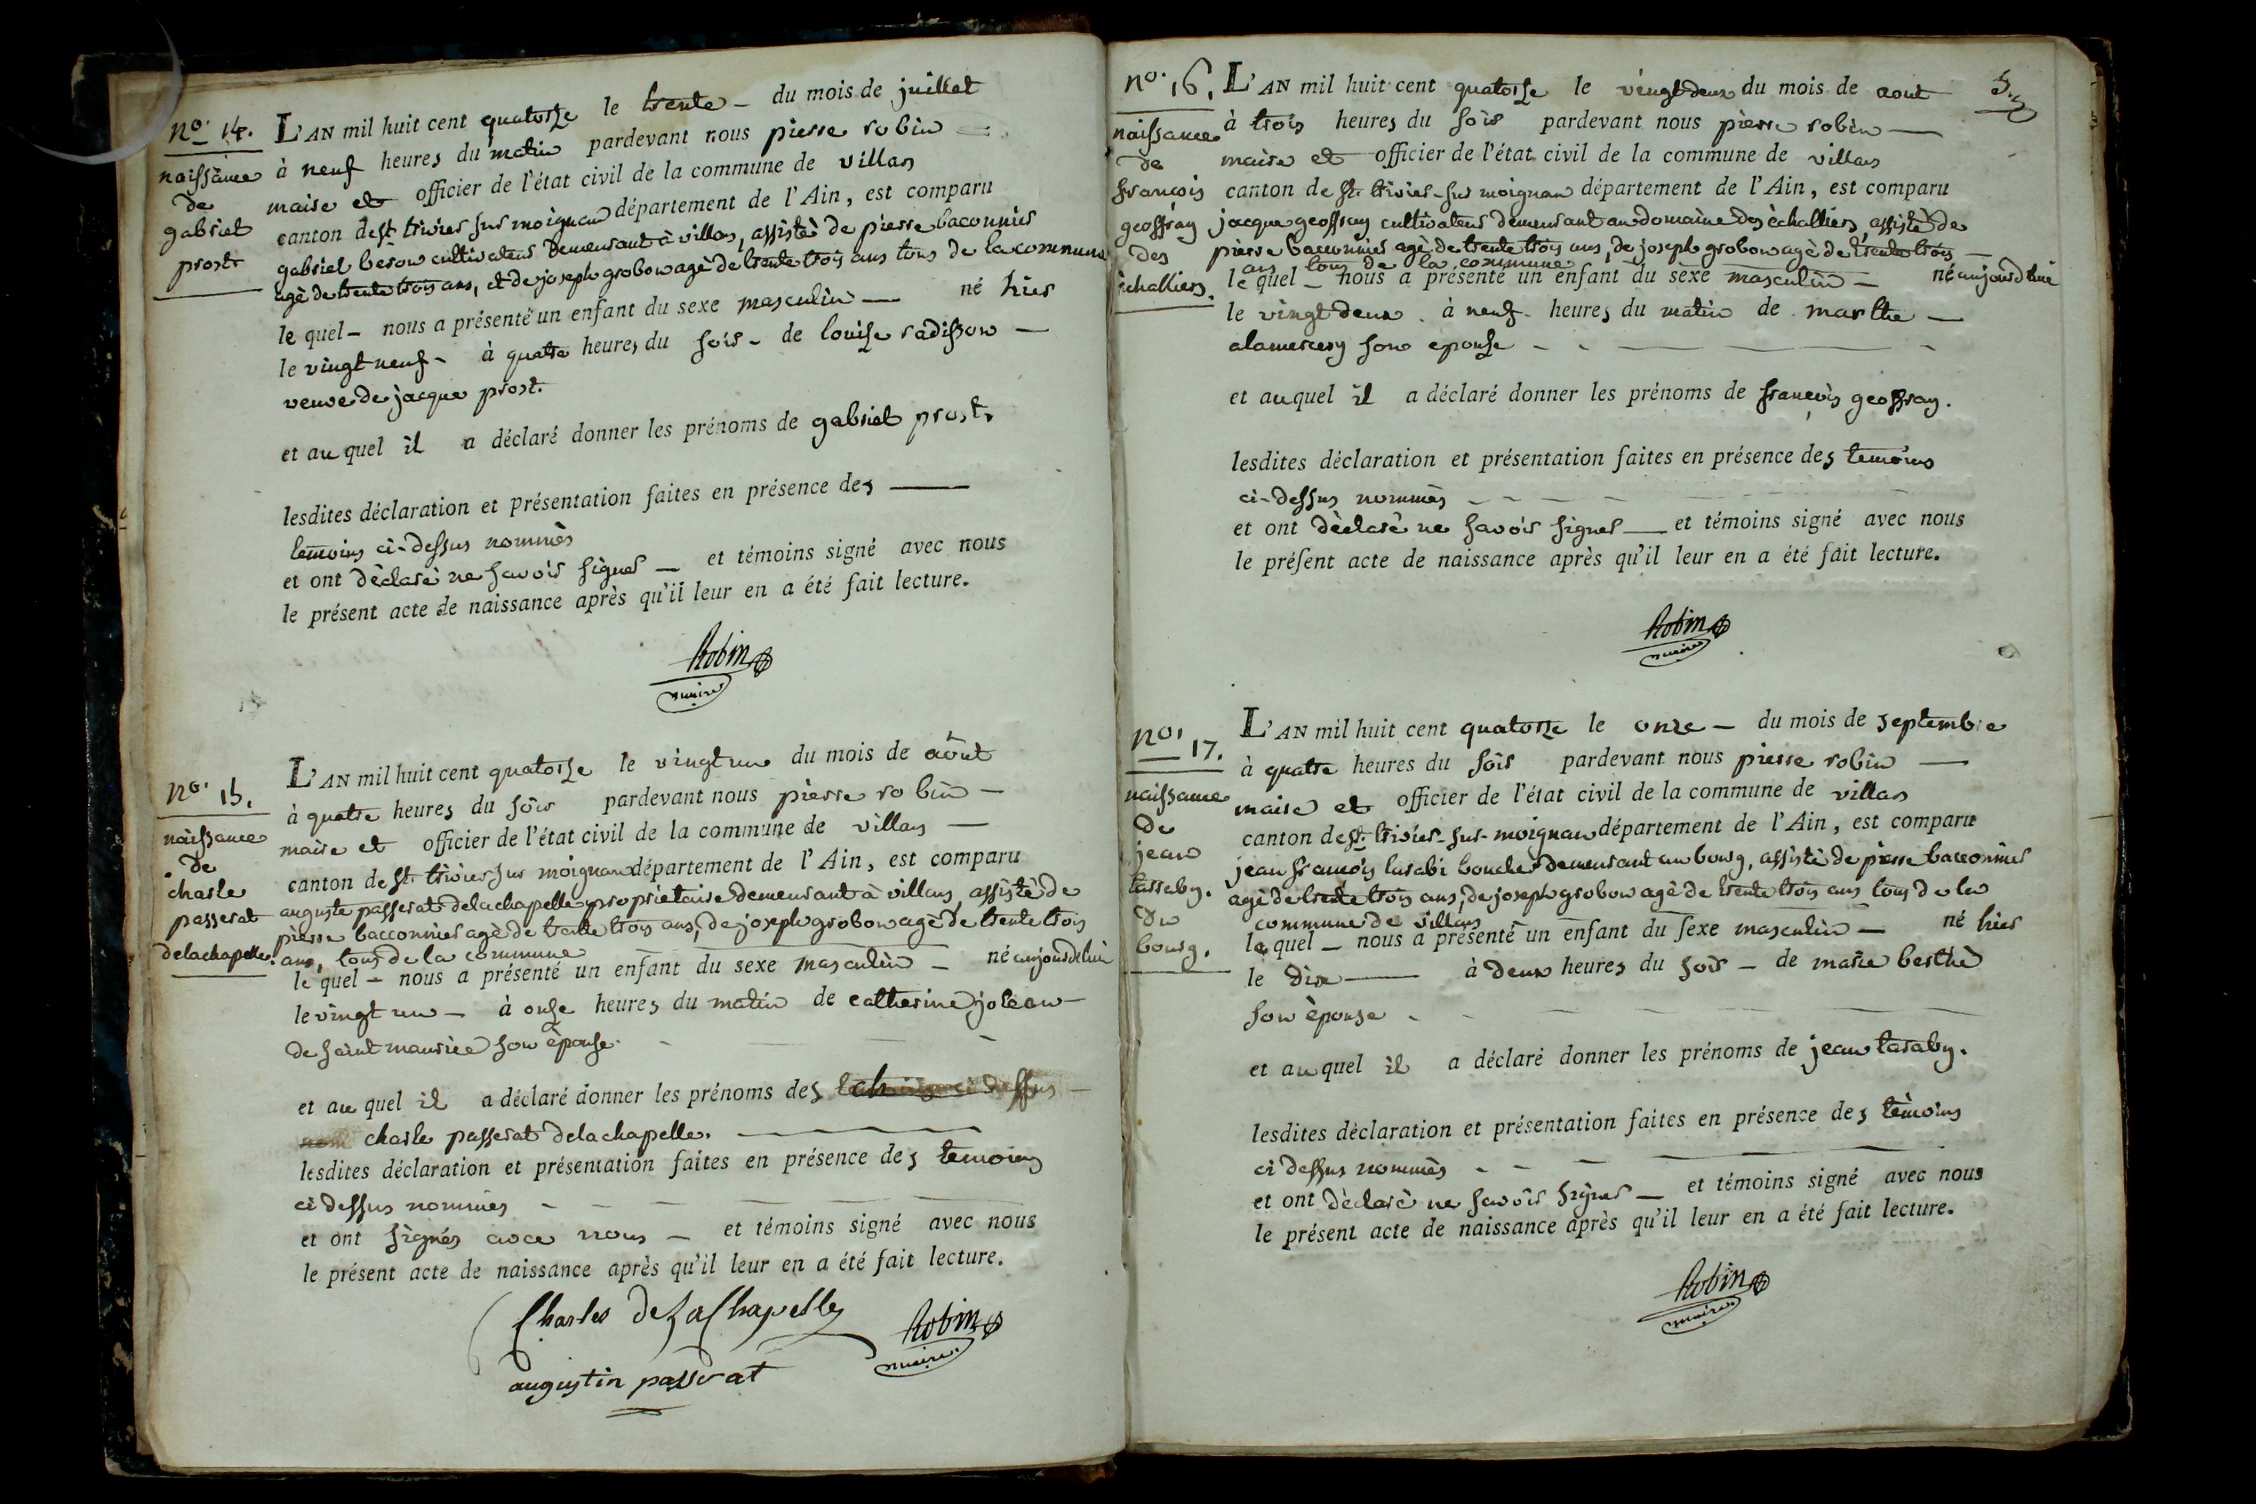 nº. 14.
naissance
de
gabriel
prost
L'AN mil huit cent quatorze le trente - du mois de juillet
à neuf heures du matin pardevant nous pierre robin
maire et officier de l'état civil de la commune de villars
canton de st trivier sur moignan département de l'Ain, est comparu
gabriel béron cultivateur demeurant à villars, assisté de pierre baconnier
agè de trente trois ans, et de joseph grobon agè de trente trois ans tous de la commune
le quel - nous a présenté un enfant du sexe masculin — né hier
le vingt neuf - à quatre heures du soir - de louise radisson —
veuve de jacque prost.
et au quel il a déclaré donner les prénoms de gabriel prost.
lesdites déclaration et présentation faites en présence des —
temoins ci-dessus nommès
et ont dèclarè ne savoir signer — et témoins signé avec nous
le présent acte de naissance après qu'il leur en a été fait lecture.
Robin
maire
nº. 15.
naissance
de
charle
passerat
delachapelle.
L'AN mil huit cent quatorze le vingt un du mois de août
à quatre heures du soir pardevant nous pierre robin —
maire et officier de l'état civil de la commune de villars —
canton de st trivier sur moignan département de l'Ain, est comparu
auguste passerat delachapelle proprietaire demeurant à villars, assistè de
pierre bacconnier agè de trente trois ans, de joseph grobon agè de trente trois
ans, tous de la commune
le quel - nous a présenté un enfant du sexe masculin — né aujourdhui
le vingt un — à onze heures du matin de catherine joleau —
de saint maurice son èpouse.
et au quel il a déclaré donner les prénoms des
charle passerat delachapelle. —
lesdites déclaration et présentation faites en présence des temoins
ci dessus nommés
et ont signés avec nous — et témoins signé avec nous
le présent acte de naissance après qu'il leur en a été fait lecture.
Charles de LaChapelle
Robin
maire
augustin passerat
5
nº. 16.
naissance
de
françois
geoffray
des
échalliers.
L'AN mil huit cent quatorze le vingt deux du mois de aout
à trois heures du soir pardevant nous pierre robin —
maire et officier de l'état civil de la commune de villars
canton de st. trivier-sur moignan département de l'Ain, est comparu
jacque geoffray cultivateur demeurant au domaine des èchalliers, assistè de
pierre bacconnier agè de trente trois ans, de joseph grobon agè de trente trois —
ans tous de la commune
le quel - nous a présenté un enfant du sexe masculin — né aujourdhui
le vingt deux à neuf heures du matin de marthe —
alamercery son epouse
et au quel il a déclaré donner les prénoms de françois geoffray.
lesdites déclaration et présentation faites en présence des temoins
ci-dessus nommès
et ont dèclarè ne savoir signer — et témoins signé avec nous
le présent acte de naissance après qu'il leur en a été fait lecture.
Robin
maire
nº. 17.
naissance
de
jean
tassaby.
du
bourg.
L'AN mil huit cent quatorze le onze — du mois de septembre
à quatre heures du soir pardevant nous pierre robin —
maire et officier de l'état civil de la commune de villars
canton de st. trivier-sur-moignan département de l'Ain, est comparu
jean françois tarabi boucher demeurant au bourg, assistè de pierre bacconnier
agè de trente trois ans, de joseph grobon agè de trente trois ans tous de la
commune de villars
le quel — nous a présenté un enfant du sexe masculin — né hier
le dix — à deux heures du soir — de marie berthè
son èpouse
et au quel il a déclaré donner les prénoms de jean taraby.
lesdites déclaration et présentation faites en présence des tèmoins
ci dessus nommès
et ont dèclarè ne savoir signer — et témoins signé avec nous
le présent acte de naissance après qu'il leur en a été fait lecture.
Robin
maire